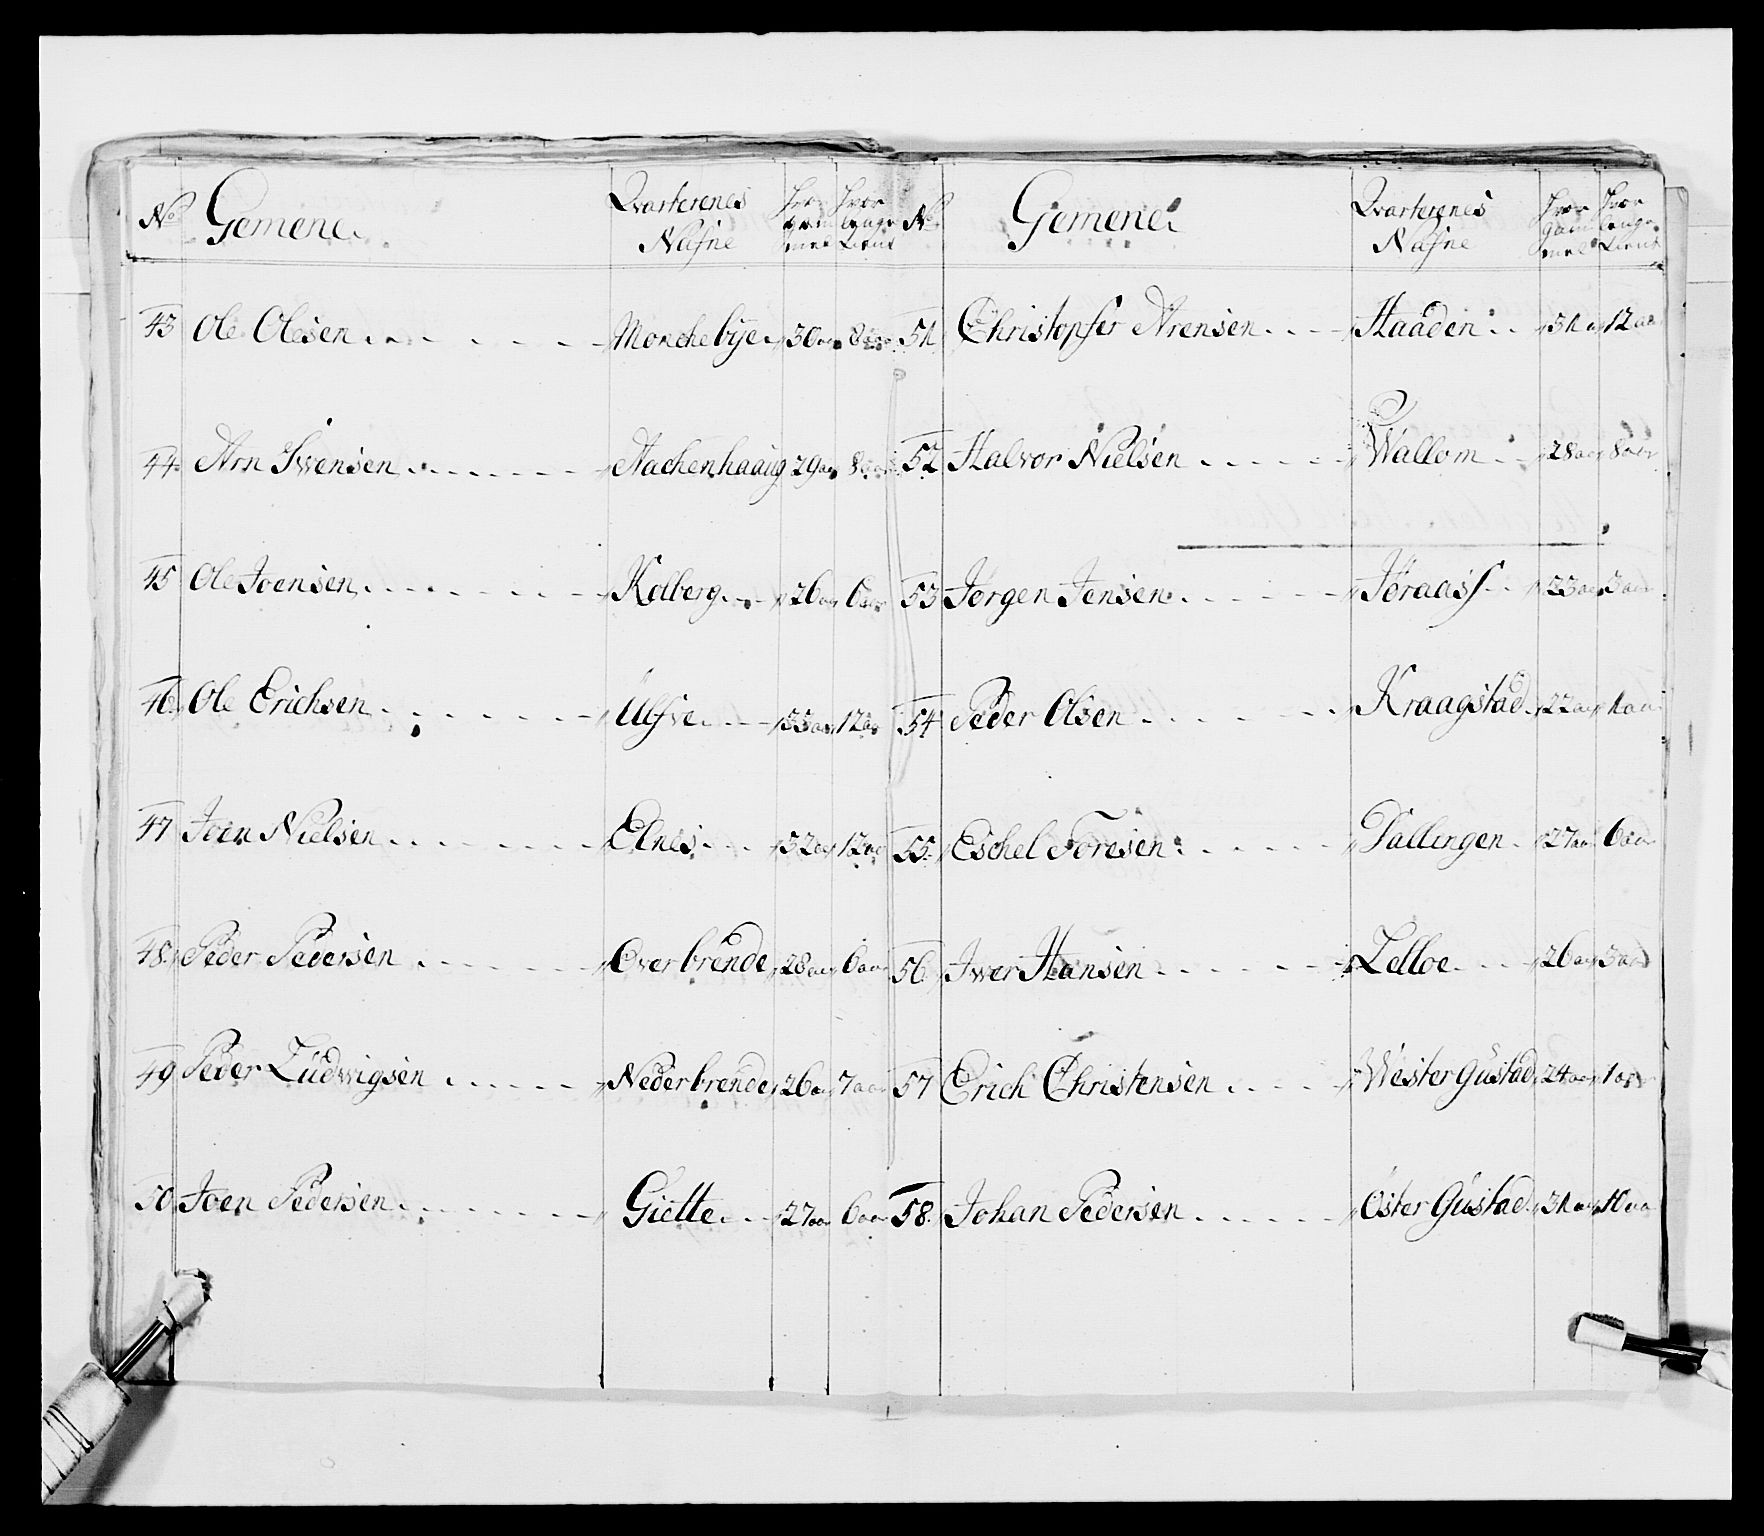 No Gemene. Qvarterenes Nafne Hvor gammel Hvor lenge tient
43 Ole Olesen Monchebÿe 30 aar 8 aar
44 Arn Swensen Aachenhaaug 29 aar 8 aar
45 Ole Joensen Kolberg 26 aar 6 aar
46 Ole Erichsen Ulfve 33 aar 12 aar
47 Joen Nielsen Elnes 32 aar 12 aar
48 Peder Pedersen Overbrende 28 aar 6 aar
49 Peder Ludwigsen Nederbrende 26 aar 7 aar
50 Joen Pedersen Giette 27 aar 6 aar
No Gemene. Qvarterenes Nafne Hvor gammel Hvor lenge tient
51 Christopfer Arensen Haaden 31 aar 12 aar
52 Halvor Nielsen Wallom 28 aar 8 aar
53 Jørgen Jensen Jøraass 23 aar 3 aar
54 Peder Olsen Kraagstad 22 aar 1 aar
55 Eschel Toresen Dallingen 27 aar 6 aar
56 Iwer Hansen Lelloe 26 aar 3 aar
57 Erich Christensen Wester Gustad 24 aar 1 aar
58 Johan Pedersen Øster Gustad 31 aar 10 aar